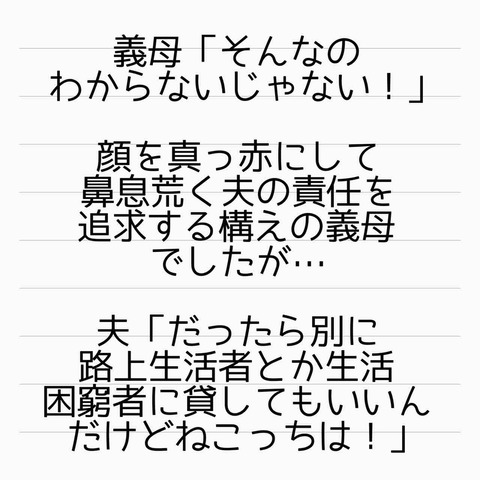 義母「そんなの
わからないじゃない！」
顔を真っ赤にして
鼻息荒く夫の責任を
追求する構えの義母
でしたが…
夫「だったら別に
路上生活者とか生活
困窮者に貸してもいいん
だけどねこっちは！」